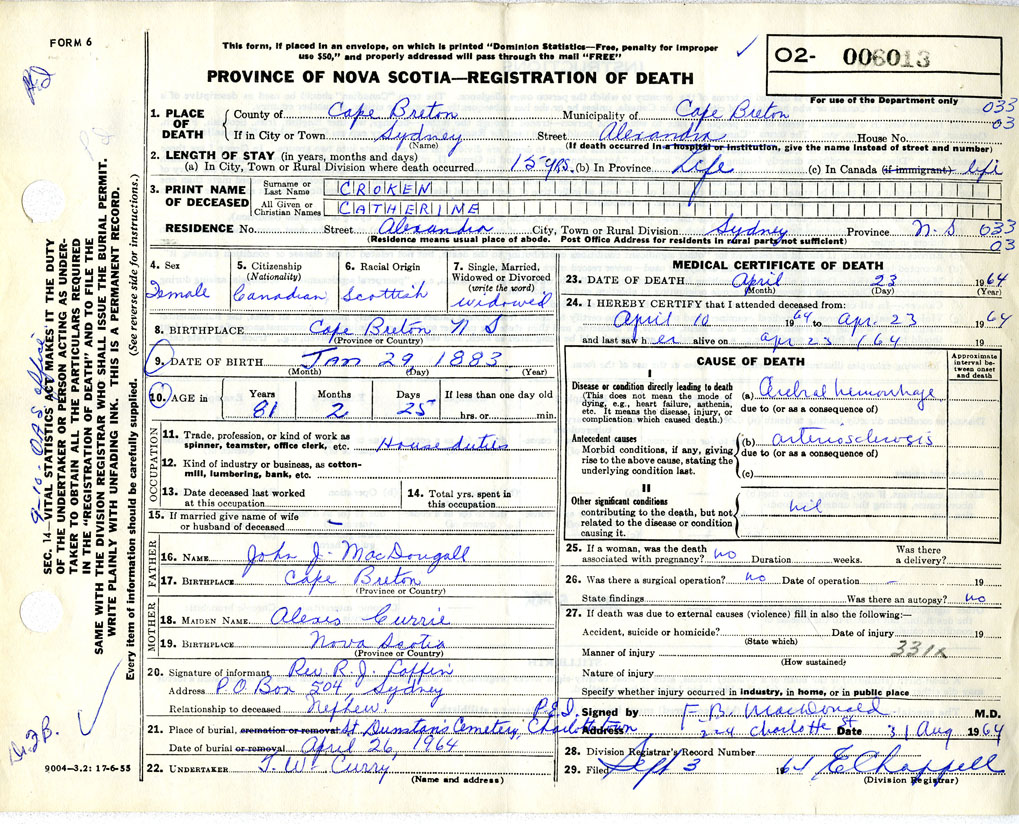 FORM 6
This form, if placed in an envelope, on which is printed "Dominion Statistics—Free, penalty for improper
use $50," and properly addressed will pass through the mail "FREE"
PROVINCE OF NOVA SCOTIA—REGISTRATION OF DEATH
02- 006013
For use of the Department only
033
03
1. PLACE OF DEATH County of Cape Breton Municipality of Cape Breton
If in City or Town Sydney Street Alexandra House No.
(Name) (If death occurred in a hospital or institution, give the name instead of street and number)
2. LENGTH OF STAY (in years, months and days)
(a) In City, Town or Rural Division where death occurred 15 yrs. (b) In Province Life (c) In Canada (if immigrant) life
3. PRINT NAME OF DECEASED Surname or Last Name CROKEN
All Given or Christian Names CATHERINE
RESIDENCE No. Street Alexandra City, Town or Rural Division Sydney Province N.S 033
03
(Residence means usual place of abode. Post Office Address for residents in rural parts not sufficient)
4. Sex Female
5. Citizenship (Nationality) Canadian
6. Racial Origin Scottish
7. Single, Married, Widowed or Divorced (write the word) widowed
8. BIRTHPLACE Cape Breton N S
(Province or Country)
9. DATE OF BIRTH JAN 29 1883
(Month) (Day) (Year)
10. AGE in Years 81 Months 2 Days 25 If less than one day old hrs. or min.
OCCUPATION
11. Trade, profession, or kind of work as spinner, teamster, office clerk, etc. House duties
12. Kind of industry or business, as cotton-mill, lumbering, bank, etc.
13. Date deceased last worked at this occupation
14. Total yrs. spent in this occupation
15. If married give name of wife or husband of deceased —
FATHER
16. NAME John J. MacDougall
17. BIRTHPLACE Cape Breton
(Province or Country)
MOTHER
18. MAIDEN NAME Alexis Currie
19. BIRTHPLACE Nova Scotia
(Province or Country)
20. Signature of informant Rev. R. J. Coffin
Address P.O. Box 504, Sydney
Relationship to deceased Nephew
21. Place of burial, cremation or removal St Dunstan's Cemetery, Charlottetown P.E.I.
Date of burial or removal April 26, 1964
22. UNDERTAKER T. W. Curry
(Name and address)
MEDICAL CERTIFICATE OF DEATH
23. DATE OF DEATH April 23 1964
(Month) (Day) (Year)
24. I HEREBY CERTIFY that I attended deceased from:
April 10 1964 to apr. 23 1964
and last saw h er alive on apr 23 / 64 19
CAUSE OF DEATH
Approximate interval between onset and death
I
Disease or condition directly leading to death
(This does not mean the mode of dying, e.g., heart failure, asthenia, etc. It means the disease, injury, or complication which caused death.)
(a) Cerebral hemorrhage
due to (or as a consequence of)
Antecedent causes
Morbid conditions, if any, giving rise to the above cause, stating the underlying condition last.
(b) arteriosclerosis
due to (or as a consequence of)
(c)
II
Other significant conditions
contributing to the death, but not related to the disease or condition causing it.
nil
25. If a woman, was the death associated with pregnancy? no Duration weeks. Was there a delivery?
26. Was there a surgical operation? no Date of operation — 19
State findings Was there an autopsy? no
27. If death was due to external causes (violence) fill in also the following:—
Accident, suicide or homicide? Date of injury 19
(State which)
Manner of injury 331x
(How sustained)
Nature of injury
Specify whether injury occurred in industry, in home, or in public place
Signed by F. B. MacDonald M.D.
Address 224 Charlotte St Date 31 Aug 1964
28. Division Registrar's Record Number
29. Filed Sept 3 1964 E Chappell
(Division Registrar)
SEC. 14—VITAL STATISTICS ACT MAKES IT THE DUTY
OF THE UNDERTAKER OR PERSON ACTING AS UNDER-
TAKER TO OBTAIN ALL THE PARTICULARS REQUIRED
IN THE "REGISTRATION OF DEATH" AND TO FILE THE
SAME WITH THE DIVISION REGISTRAR WHO SHALL ISSUE THE BURIAL PERMIT.
WRITE PLAINLY WITH UNFADING INK. THIS IS A PERMANENT RECORD.
Every item of information should be carefully supplied. (See reverse side for instructions.)
9004-3.2: 17-6-55